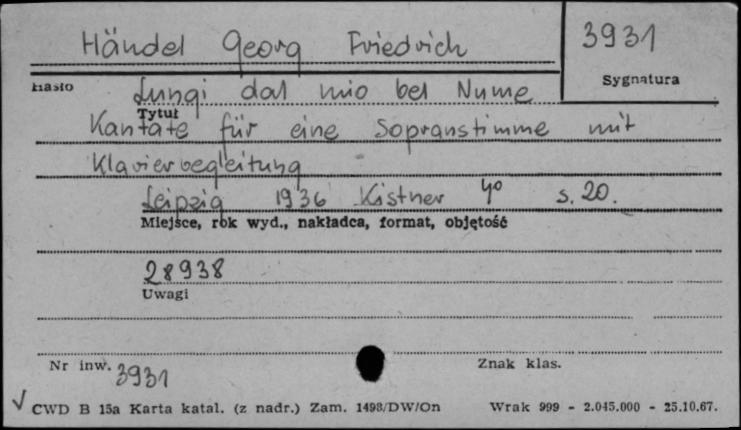 Händel Georg Friedrich
3931
Hasło
Sygnatura
Lungi dal mio bel Nume
Tytuł
Kantate für eine Sopranstimme mit
Klavierbegleitung
Leipzig 1936 Kistner 4º s. 20.
Miejsce, rok wyd., nakładca, format, objętość
28938
Uwagi
Nr inw. 3931
Znak klas.
CWD B 15a Karta katal. (z nadr.) Zam. 1498/DW/On Wrak 999 - 2.045.000 - 25.10.67.